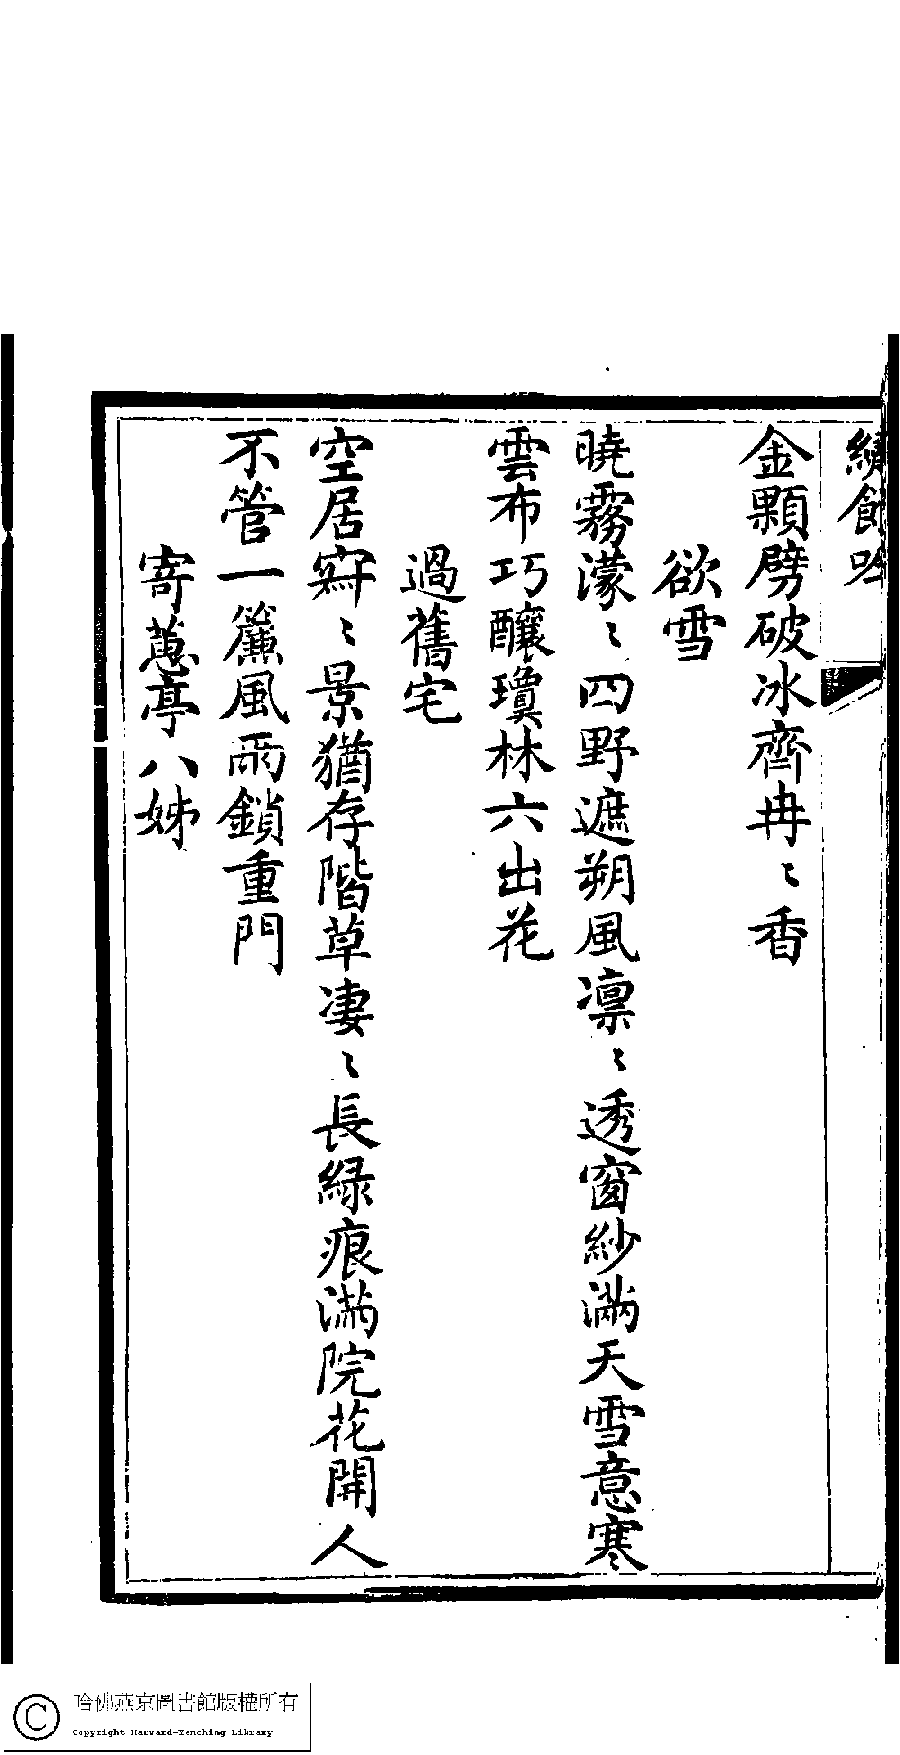 繡餘吟
金顆劈破冰齊冉〻香
欲雪
曉霧濛〻四野遮朔風凛〻透窗紗滿天雪意寒
雲布巧釀瓊林六出花
過舊宅
空居㝥〻景猶存階草凄〻長綠痕滿院花開人
不管一簾風雨鎖重門
寄蕙亭八姊
哈佛燕京圖書館版權所有
Copyright Harvard-Yenching Library